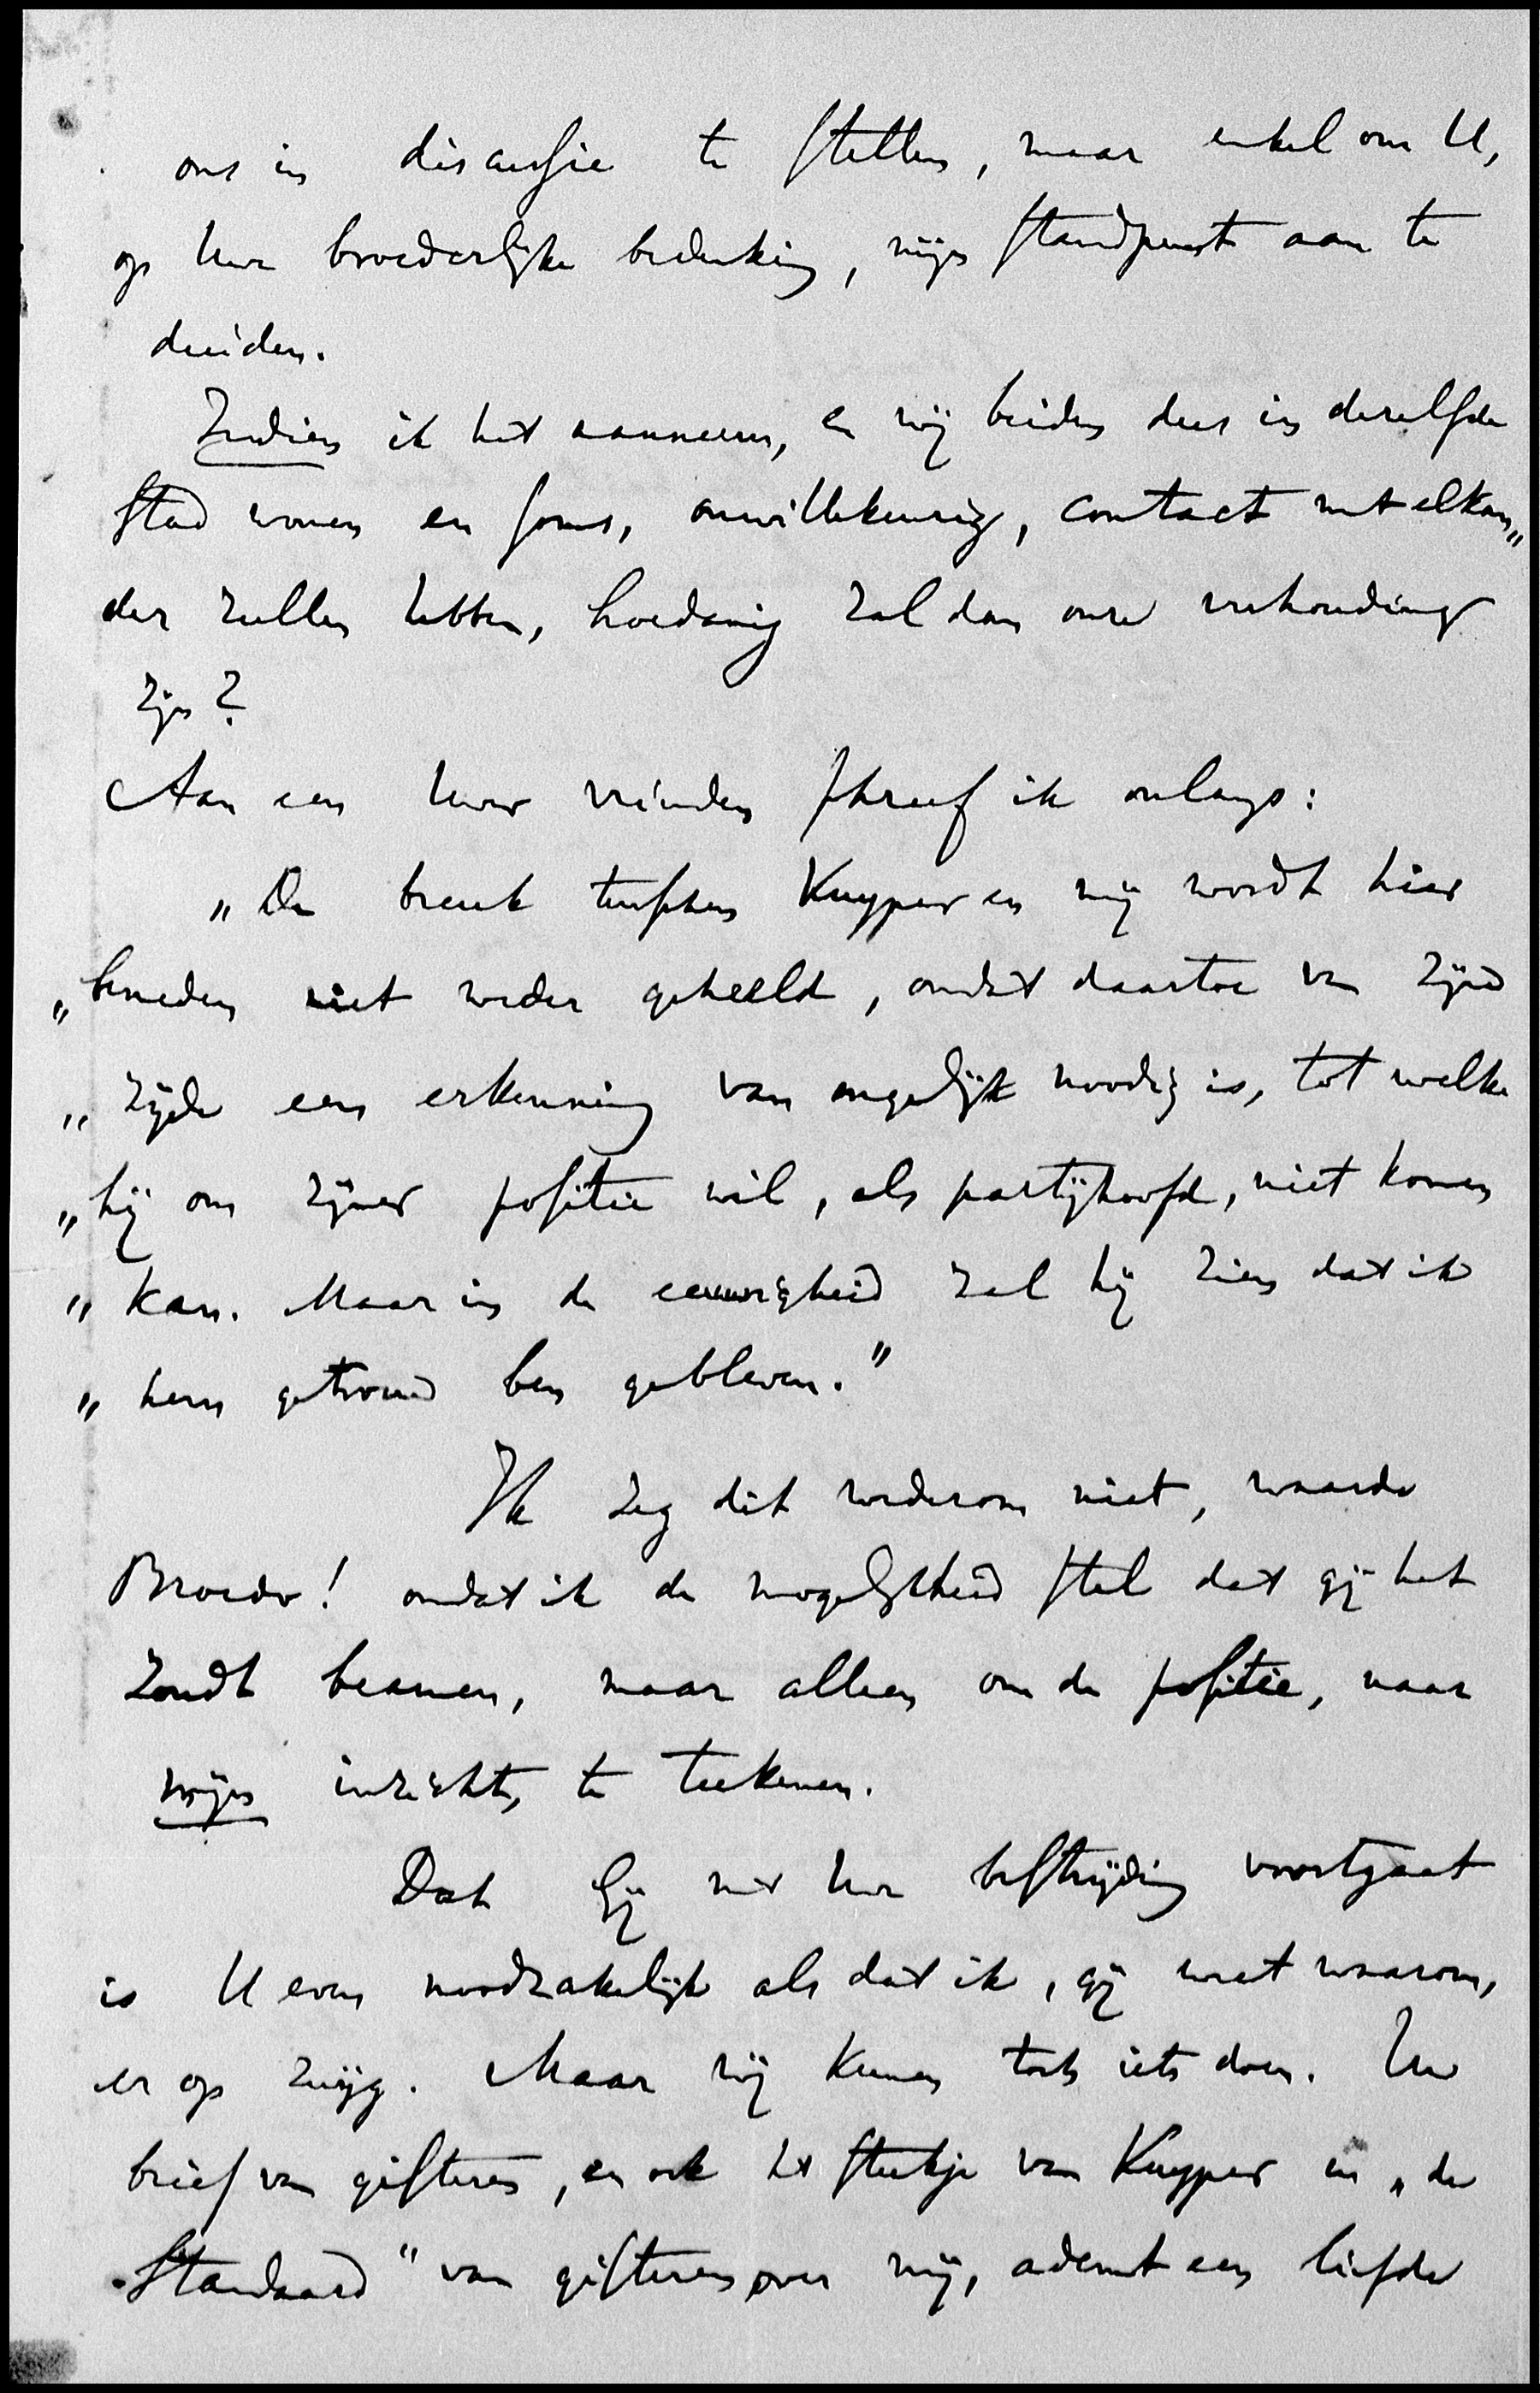 ons in discussie te stellen, maar enkel om U,
op Uwe broederlijke bedenking, mijn standpunt aan te
duiden.
Indien ik het aanneem, en wij beiden dus in dezelfde
stad wonen en soms, onwillekeurig, contact met elkan„
der zullen hebben, hoedanig zal dan onze verhouding
zijn?
Aan een Uwer vrienden schreef ik onlangs:
„De breuk tusschen Kuyper en mij wordt hier
„beneden niet weder geheeld, omdat daartoe van zijne
„zijde eene erkenning van ongelijk noodig is, tot welke
„hij om zijner positie wil, als partijhoofd, niet komen
„kan. Maar in de eeuwigheid zal hij zien dat ik
„hem getrouw ben gebleven."
Ik zeg dit wederom niet, waarde
Broeder! omdat ik de mogelijkheid stel dat gij het
zoudt beamen, maar alleen om de positie, naar
mijn inzicht, te teekenen.
Dat Gij met Uwe bestrijding voortgaat
is U even noodzakelijk als dat ik, gij weet waarom,
er op zwijg. Maar wij kunnen toch iets doen. Uw
brief van gisteren, en ook het stukje van Kuyper in „de
Standaard" van gisteren over mij, ademt een liefde